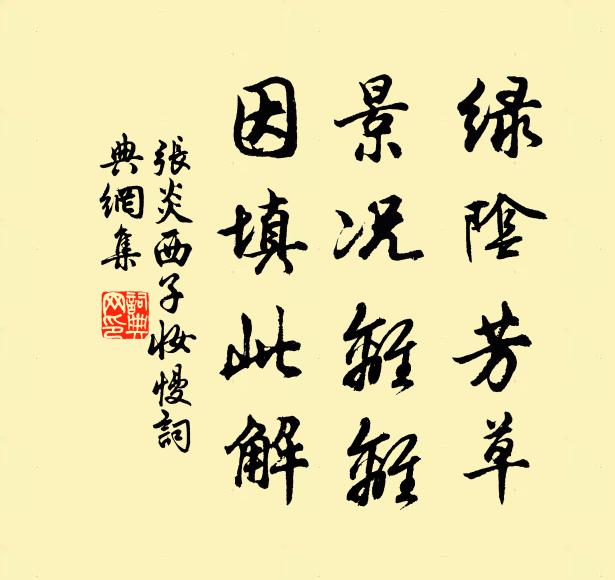 绿陰芳草
景况離離
因填此解
張炎西子妝慢詞
典網集
詞典网印